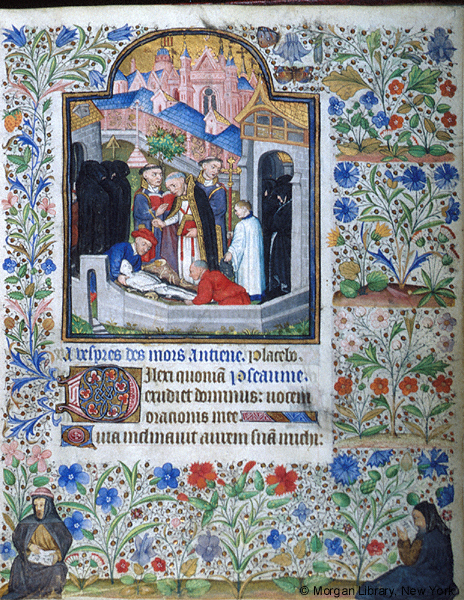 A vespres des mors Antiene. Placebo.
Dilexi quoniam Pseaume.
exaudiet dominus: vocem
orationis mee
Quia inclinavit aurem suam michi:
© Morgan Library, New York